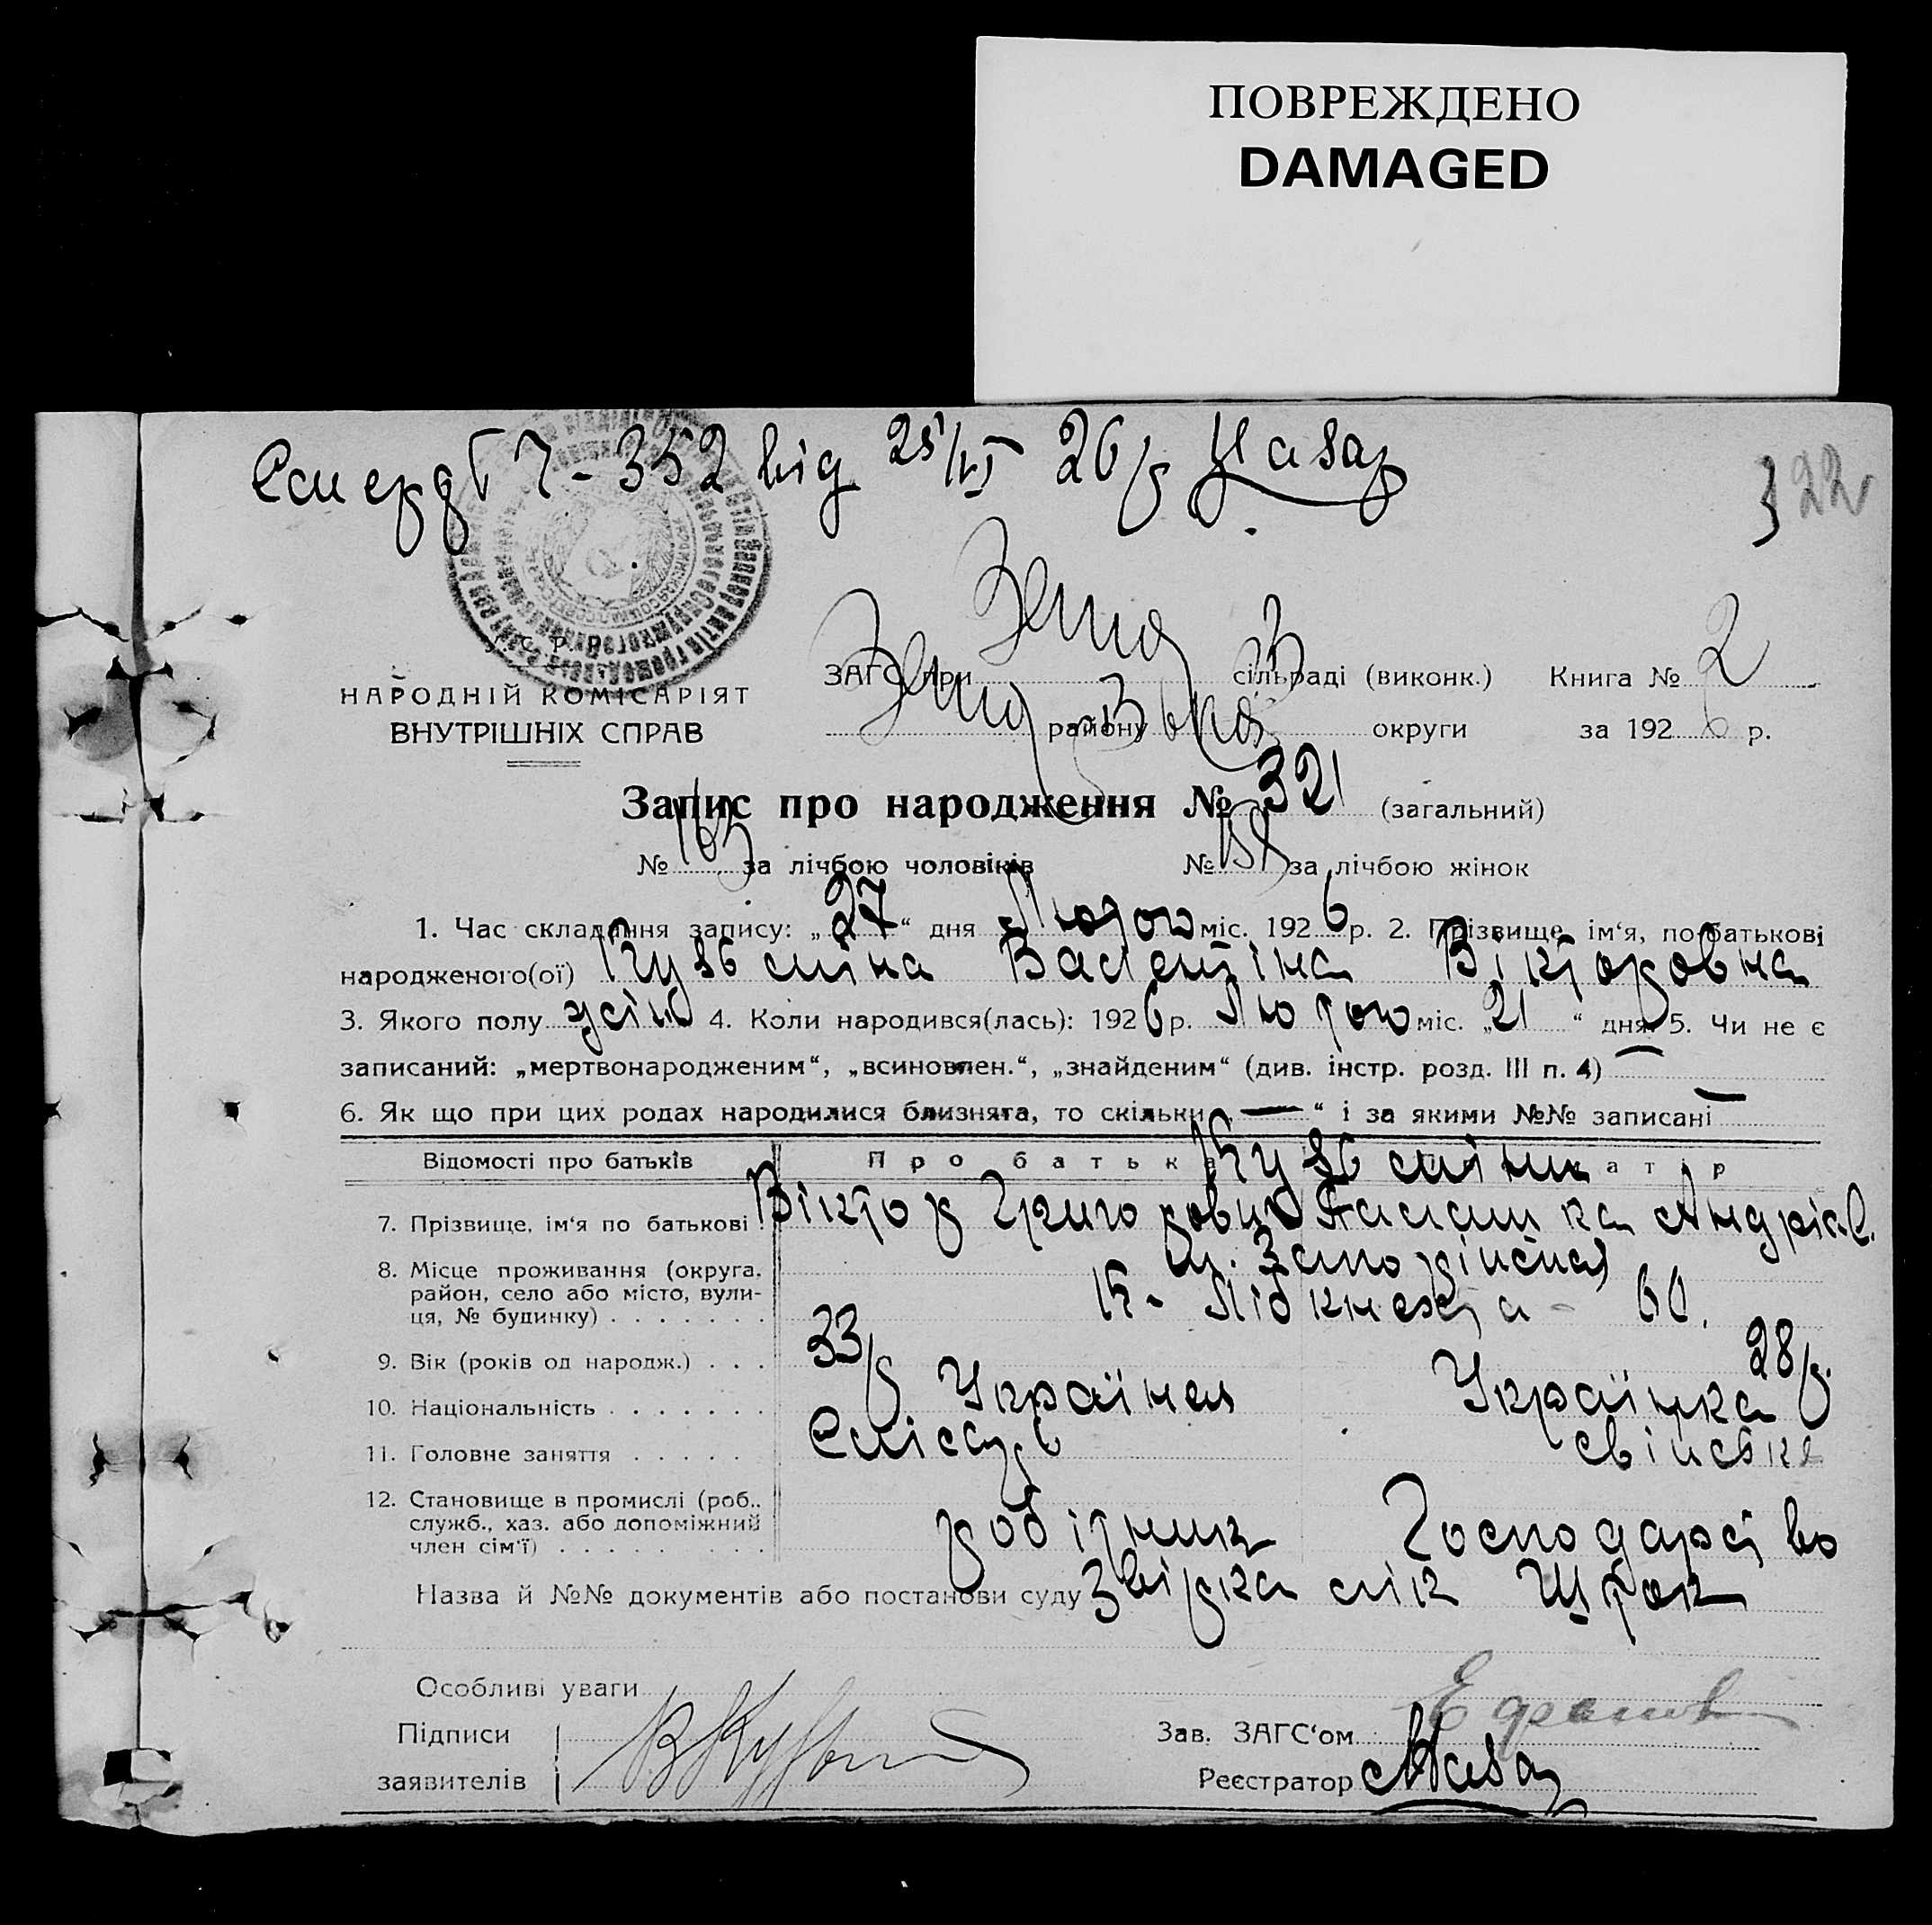 ПОВРЕЖДЕНО
DAMAGED
Смерд 7-352 від 25/VI 26/р
322
У.С.Р.Р.
НАРОДНІЙ КОМІСАРІЯТ
ВНУТРІШНІХ СПРАВ
ЗАГС при сільраді (виконк.) Книга № 2
району округи за 1926 р.
Запис про народження № 321 (загальний)
№ 163 за лічбою чоловіків № 158 за лічбою жінок
1. Час складання запису: „27“ дня Лютого міс. 1926 р. 2. Прізвище, ім‘я, по батькові
народженого(ої) Кузьміна Валентіна Вікторовна
3. Якого полу жін 4. Коли народився(лась): 1926 р. Лютого міс. „21“ дня 5. Чи не є
записаний: „мертвонародженим“, „всиновлен.“, „знайденим“ (див. інстр. розд. III п. 4) —
6. Як що при цих родах народилися близнята, то скільки „—“ і за якими №№ записані —
Відомості про батьків Про батька Кузьміни матір
7. Прізвище, ім‘я по батькові Віктор Григорович Андріяв.
8. Місце проживання (округа, район, село або місто, вулиця, № будинку) м. Запоріжжя
К- Лібкнехта - 60.
9. Вік (років од народж.) 33/р 28/р.
10. Національність Українец Українка
11. Головне заняття Слісарь свійське
12. Становище в промислі (роб., служб., хаз. або допоміжний член сім‘ї) робітник Господарство
Назва й №№ документів або постанови суду Звірка лік
Особливі уваги
Підписи
заявителів
Зав. ЗАГС‘ом
Реєстратор